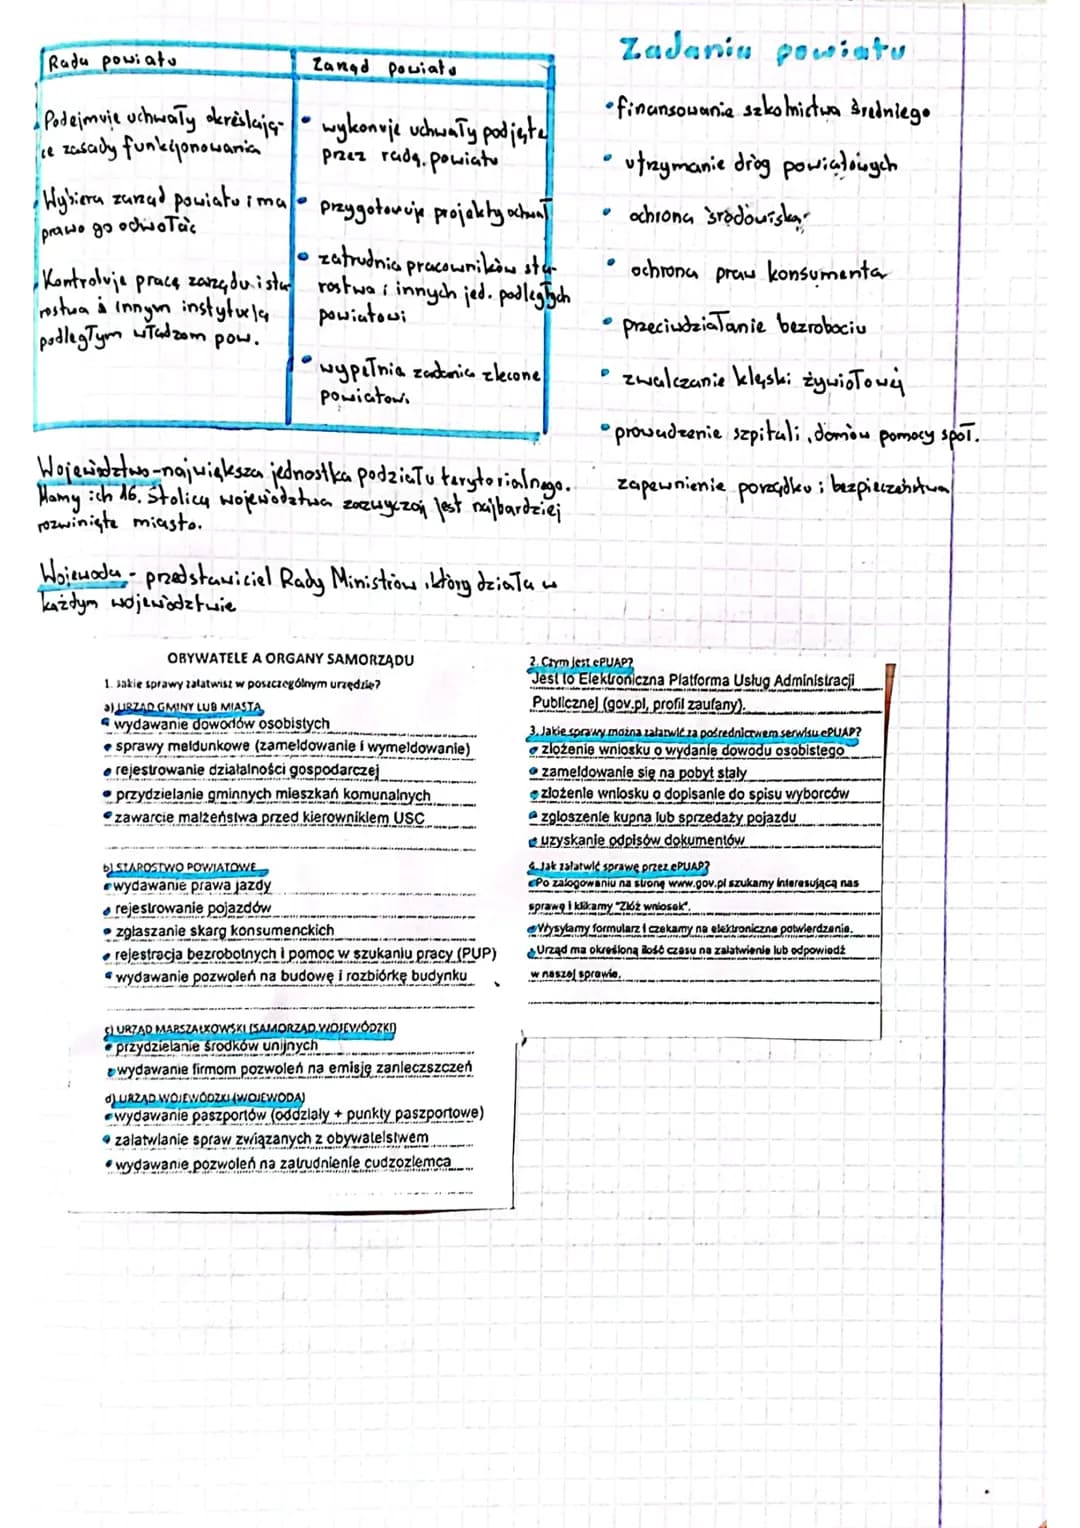 Rada powiatu
Podejmuje uchwały określają-
ce zasady funkcjonowania
Wybiera zarząd powiatu i ma
prawo go odwołać
Kontroluje pracę zarządu i sta
rostwa i innym instytucją
podległym władzom pow.
Zarząd powiatu
• wykonuje uchwały podjęte
przez radę powiatu
• przygotowuje projekty uchwał
• zatrudnia pracowników sta-
rostwa i innych jed. podległych
powiatowi
• wypełnia zadania zlecone
powiatowi
Zadania powiatu
• finansowanie szkolnictwa średniego
• utrzymanie dróg powiatowych
• ochrona środowiska
• ochrona praw konsumenta
• przeciwdziałanie bezrobociu
• zwalczanie klęski żywiołowej
• prowadzenie szpitali, domów pomocy społ.
zapewnienie porządku i bezpieczeństwa
Województwo - największa jednostka podziału terytorialnego.
Mamy ich 16. Stolicą województwa zazwyczaj jest najbardziej
rozwinięte miasto.
Wojewoda - przedstawiciel Rady Ministrów, który działa w
każdym województwie
OBYWATELE A ORGANY SAMORZĄDU
1. Jakie sprawy załatwisz w poszczególnym urzędzie?
a) URZĄD GMINY LUB MIASTA
• wydawanie dowodów osobistych
• sprawy meldunkowe (zameldowanie i wymeldowanie)
• rejestrowanie działalności gospodarczej
• przydzielanie gminnych mieszkań komunalnych
• zawarcie małżeństwa przed kierownikiem USC
b) STAROSTWO POWIATOWE
• wydawanie prawa jazdy
• rejestrowanie pojazdów
• zgłaszanie skarg konsumenckich
• rejestracja bezrobotnych i pomoc w szukaniu pracy (PUP)
• wydawanie pozwoleń na budowę i rozbiórkę budynku
c) URZĄD MARSZAŁKOWSKI (SAMORZĄD WOJEWÓDZKI)
• przydzielanie środków unijnych
• wydawanie firmom pozwoleń na emisję zanieczszczeń
d) URZĄD WOJEWÓDZKI (WOJEWODA)
• wydawanie paszportów (oddziały + punkty paszportowe)
• załatwianie spraw związanych z obywatelstwem
• wydawanie pozwoleń na zatrudnienie cudzoziemca
2. Czym jest ePUAP?
Jest to Elektroniczna Platforma Usług Administracji
Publicznej (gov.pl, profil zaufany).
3. Jakie sprawy można załatwić za pośrednictwem serwisu ePUAP?
• złożenie wniosku o wydanie dowodu osobistego
• zameldowanie się na pobyt stały
• złożenie wniosku o dopisanie do spisu wyborców
• zgłoszenie kupna lub sprzedaży pojazdu
• uzyskanie odpisów dokumentów
4. Jak załatwić sprawę przez ePUAP?
• Po zalogowaniu na stronę www.gov.pl szukamy interesującą nas
sprawę i klikamy "Złóż wniosek".
• Wysyłamy formularz i czekamy na elektroniczne potwierdzenie.
• Urząd ma określoną ilość czasu na załatwienie lub odpowiedź
w naszej sprawie.